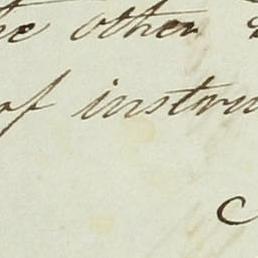 the other
of instru